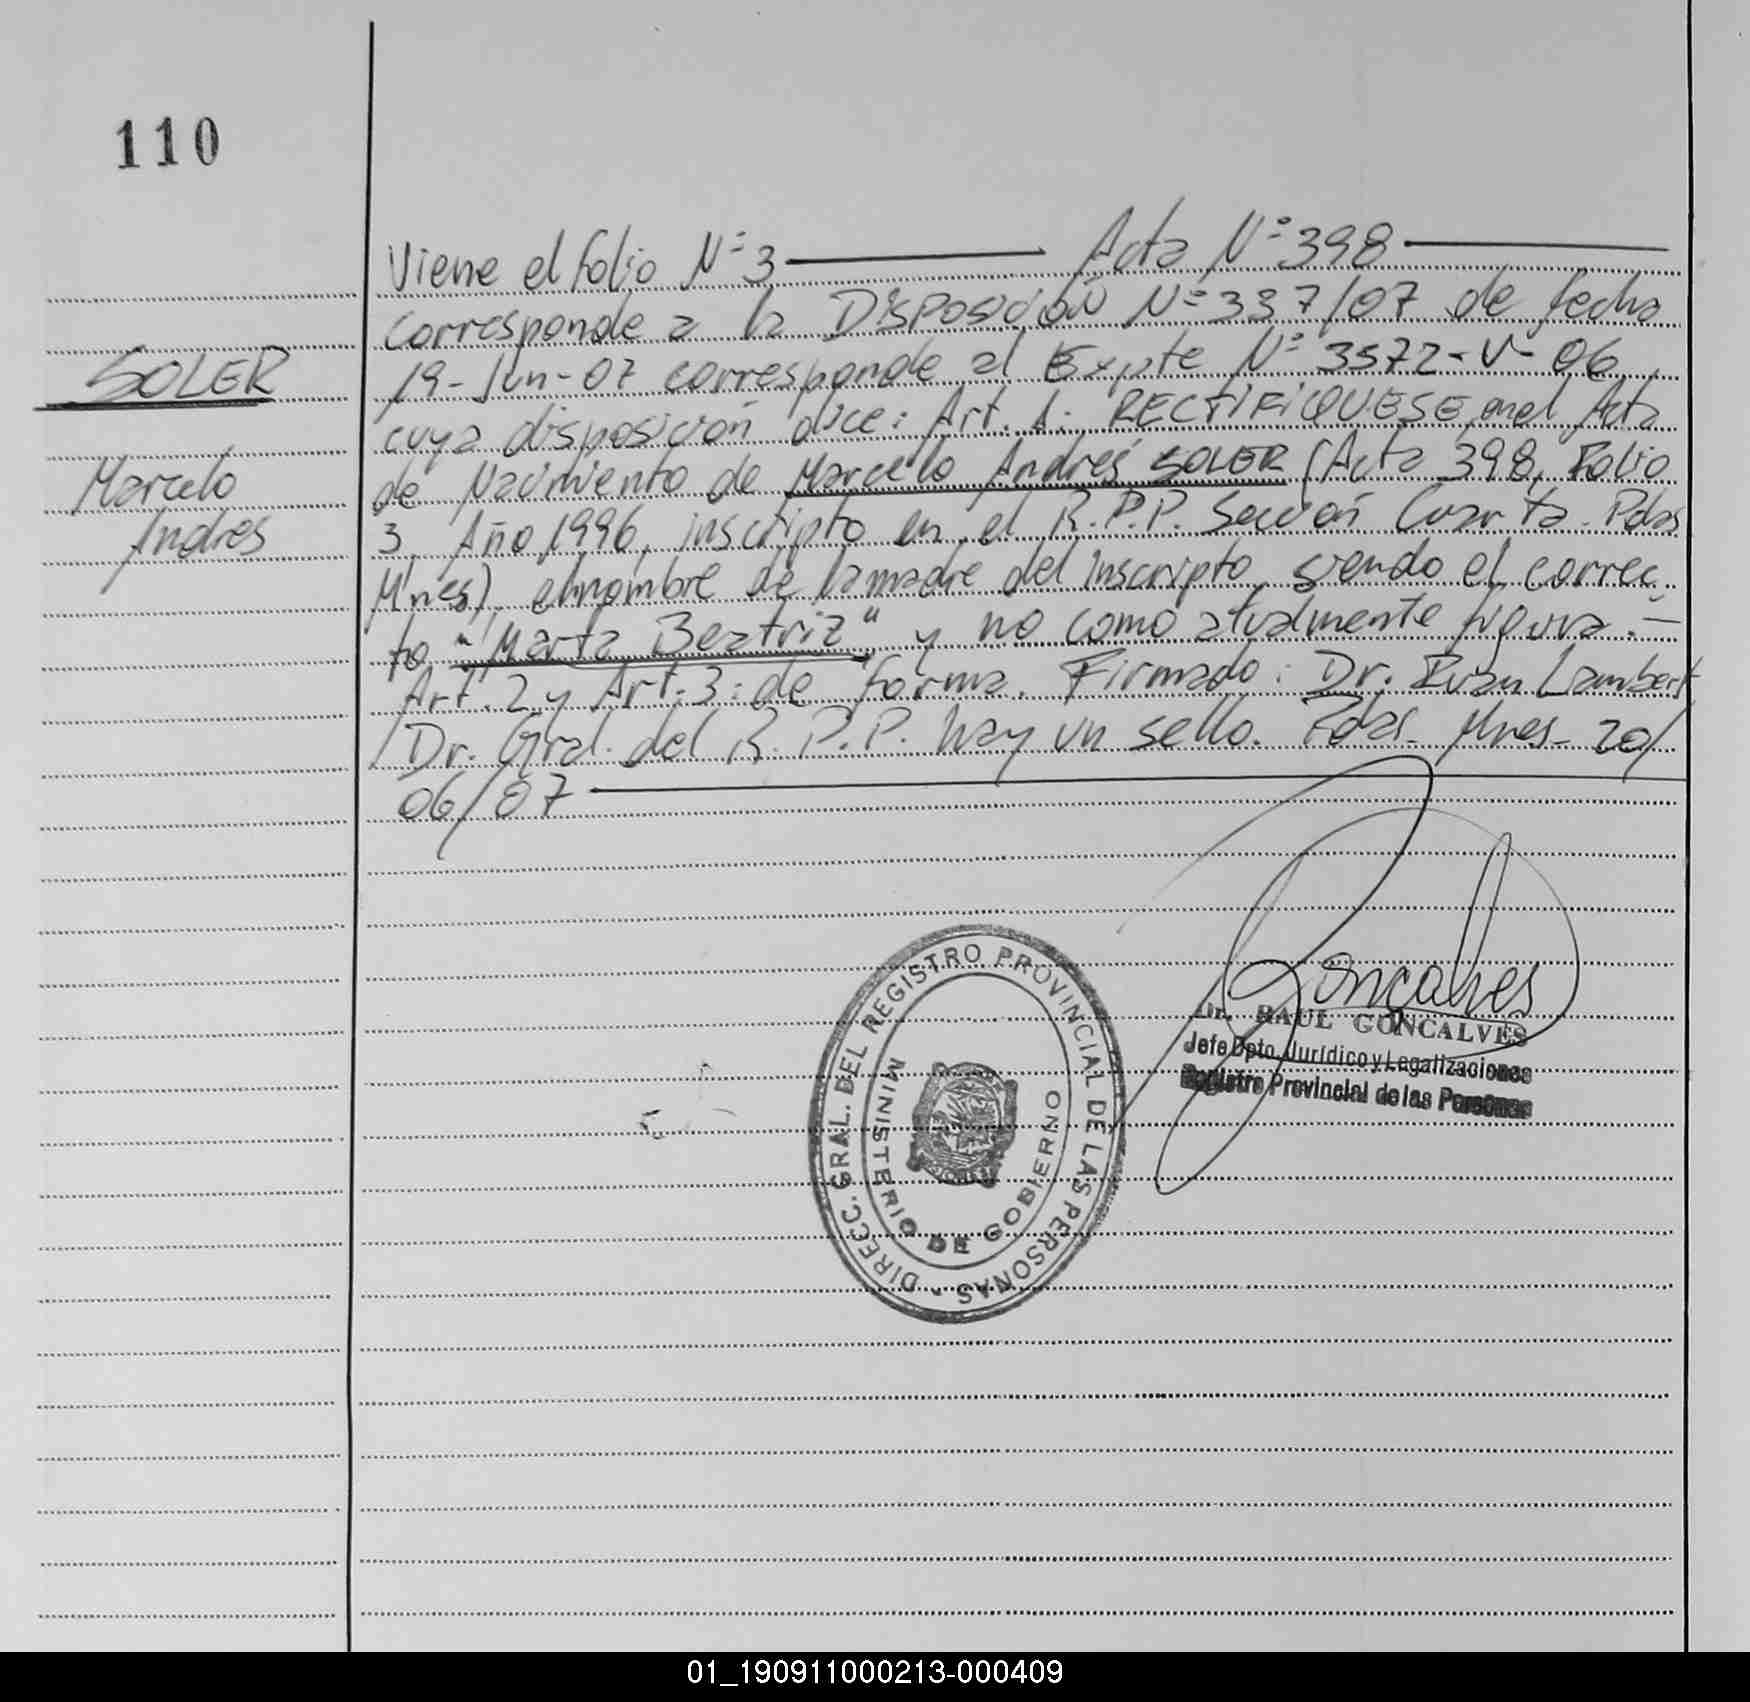 110
Viene el folio Nº 3 Acta Nº 398
corresponde a la Disposición Nº 337/07 de fecha
19-Jun-07 corresponde al Expte Nº 3572-V-06
cuya disposición dice: Art. 1: RECTIFIQUESE, en el Acta
de Nacimiento de Marcelo Andrés SOLER (Acta 398, Folio
3, Año 1996, inscripto en el R.P.P. Sección Cuarta. Pdas
Mnes), el nombre de la madre del inscripto, siendo el correc-
to "Marta Beatriz" y no como atualmente figura.-
Art. 2 y Art. 3: de forma. Firmado: Dr. Ivan Lambert
Dr. Gral. del R.P.P. hay un sello. Pdas. Mnes- 20/
06/07
SOLER
Marcelo
Andres
DIRECC. GRAL. DEL REGISTRO PROVINCIAL DE LAS PERSONAS -
MINISTERIO DE GOBIERNO
Goncalves
Dr. RAUL GONCALVES
Jefe Dpto. Jurídico y Legalizaciones
Registro Provincial de las Personas
01_190911000213-000409